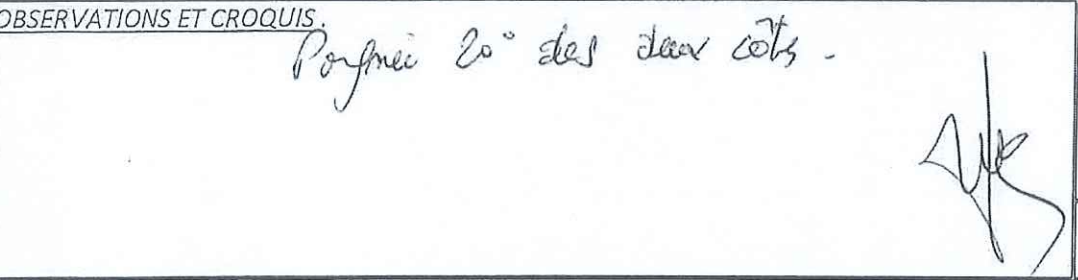 OBSERVATIONS ET CROQUIS.
Poignée 20° des deux côtés.